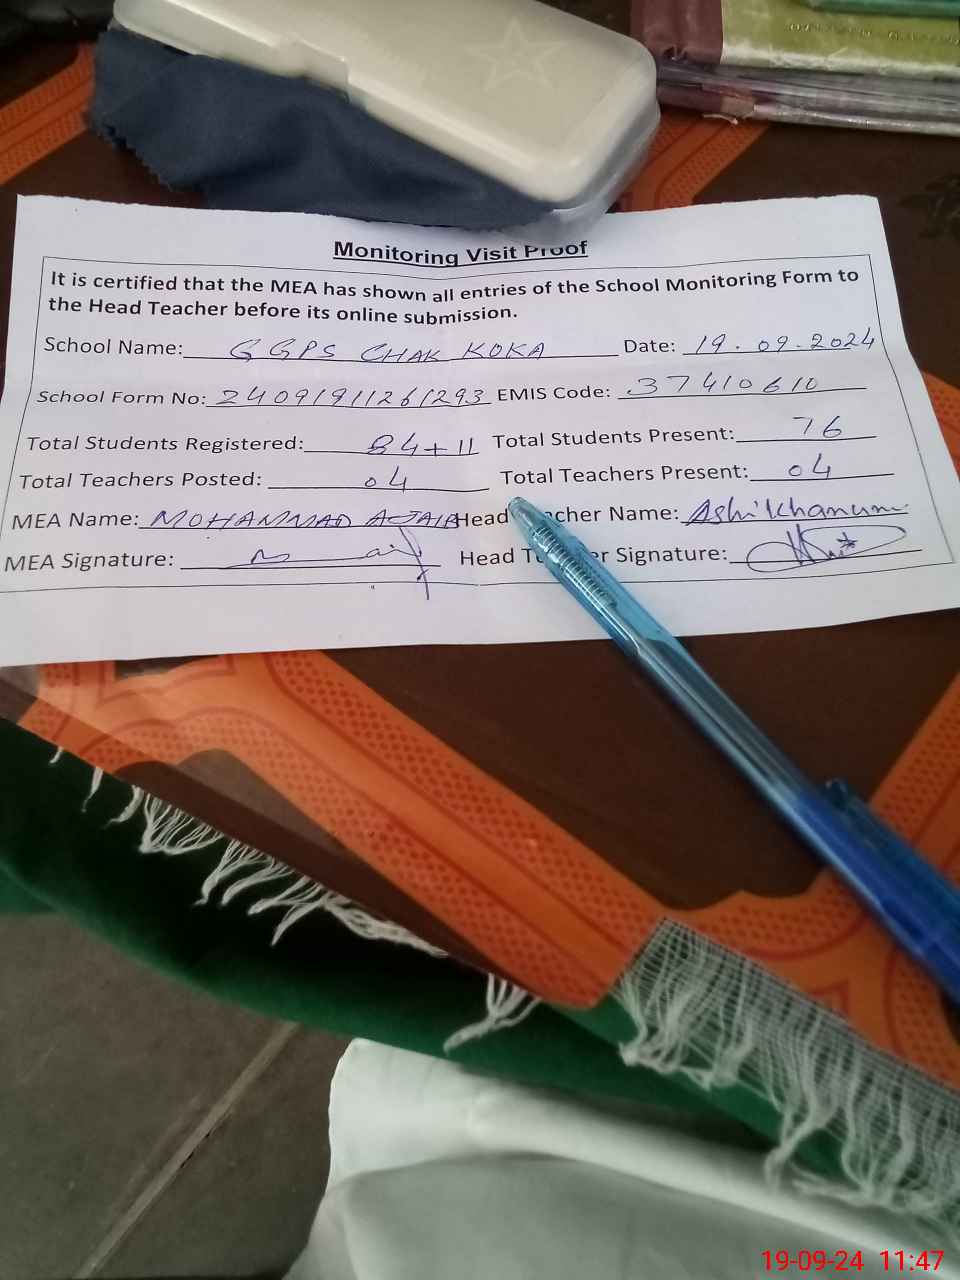 Monitoring Visit Proof
It is certified that the MEA has shown all entries of the School Monitoring Form to
the Head Teacher before its online submission.
School Name: GGPS CHAK KOKA Date: 19.09.2024
School Form No: 24091911261293 EMIS Code: 37410610
Total Students Registered: 84+11 Total Students Present: 76
Total Teachers Posted: 04 Total Teachers Present: 04
MEA Name: MOHAMMAD AJAIB Head Teacher Name: Ashi Khanum
MEA Signature: Head Teacher Signature:
19-09-24 11:47